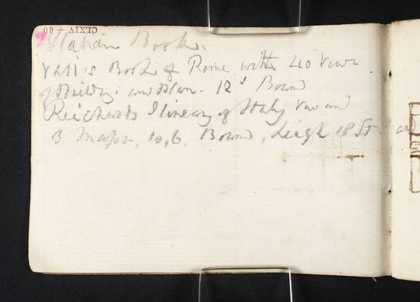 Italian Books.
Vasi's Book of Rome with 40 Views
of Buildgs and Plan. 12s Bound
Reichards Itinerary of Italy
3 Maps, 10,6. Bound, Leigh 18 Str
CLXIX